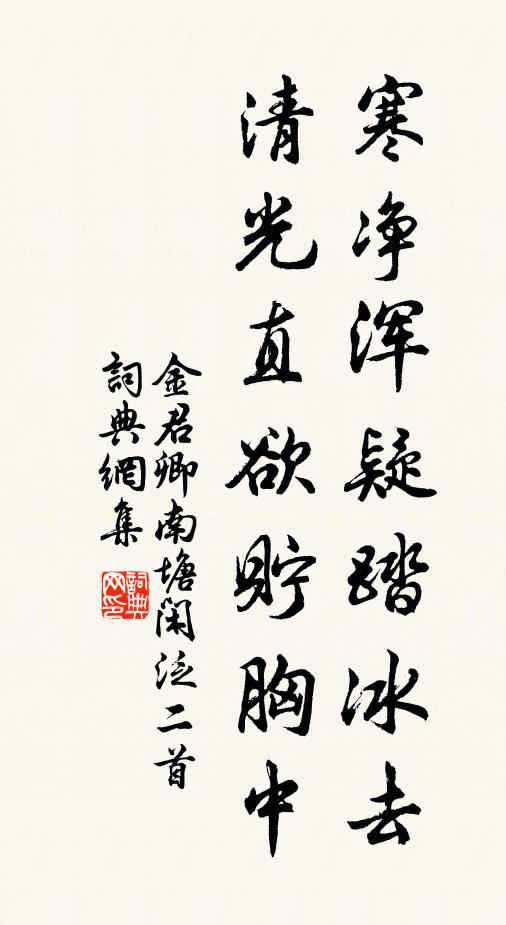 寒净浑疑踏冰去
清光直欲貯胸中
金君卿南塘闲泛二首
詞典網集
詞典网印